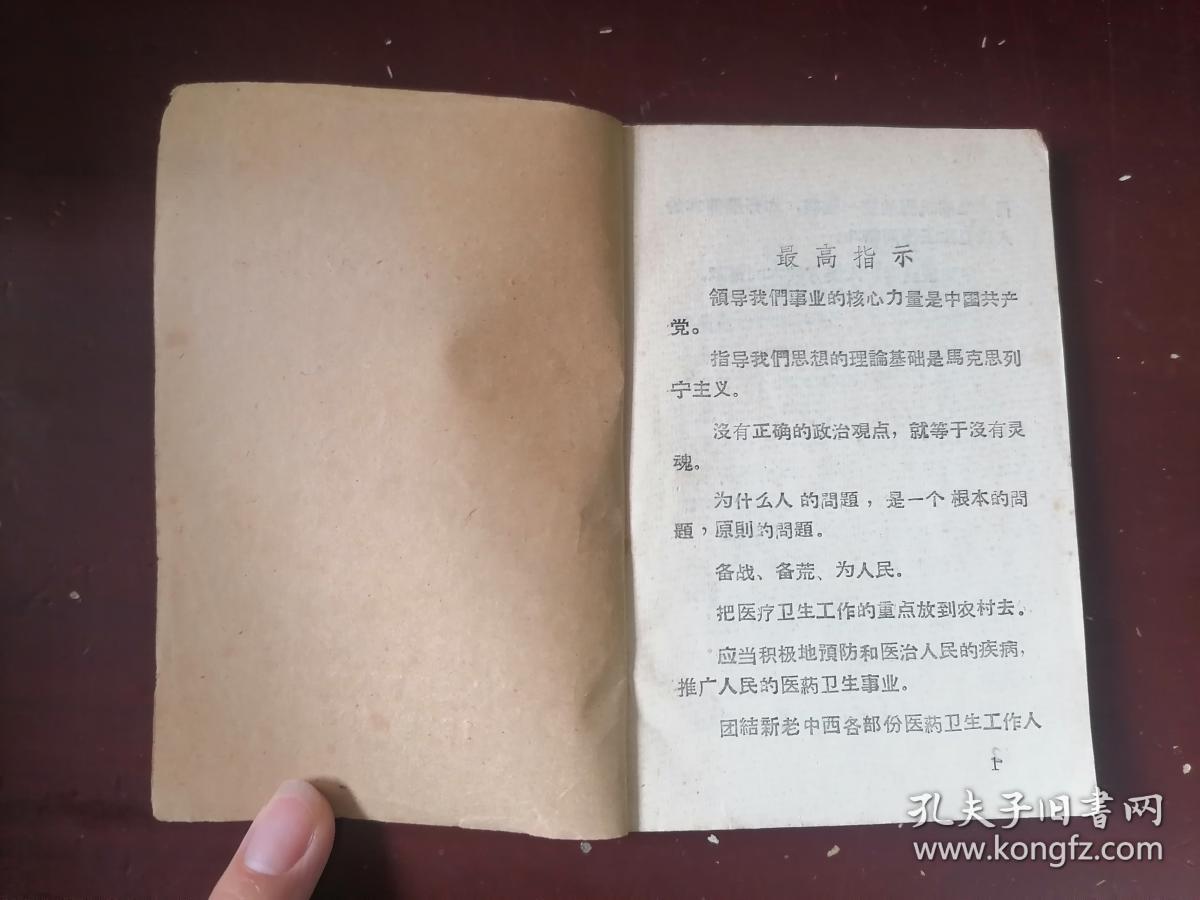 最高指示
領导我們事业的核心力量是中國共产
党。
指导我們思想的理論基础是馬克思列
宁主义。
沒有正确的政治观点，就等于沒有灵
魂。
为什么人的問題，是一个根本的問
題，原則的問題。
备战、备荒、为人民。
把医疗卫生工作的重点放到农村去。
应当积极地預防和医治人民的疾病，
推广人民的医药卫生事业。
团結新老中西各部份医药卫生工作人
1
孔夫子旧書网
www.kongfz.com